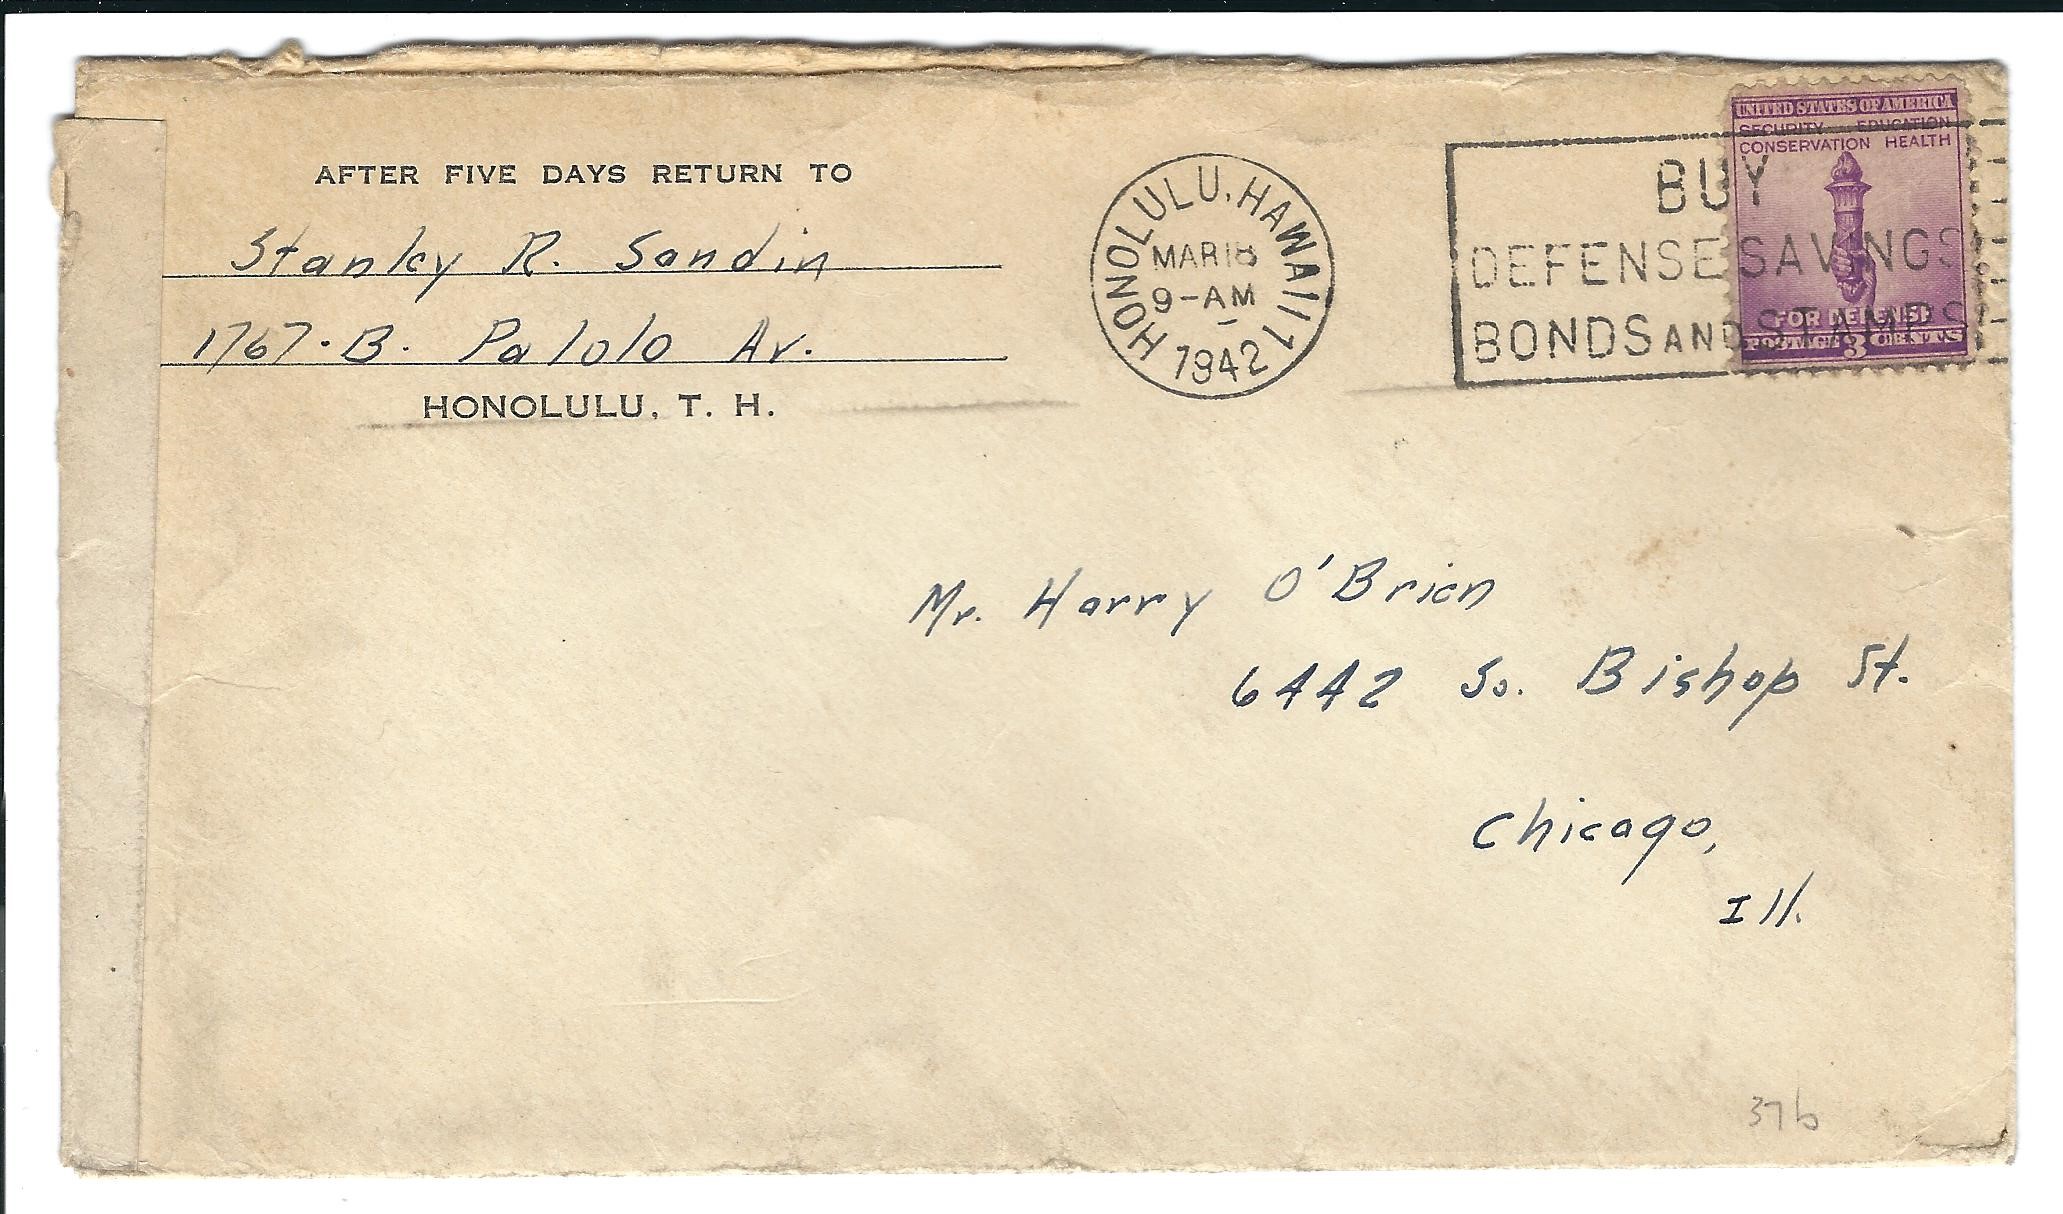 AFTER FIVE DAYS RETURN TO
Stanley R. Sandin
1767-B. Palolo Av.
HONOLULU, T. H.
HONOLULU, HAWAII 1
MAR 18
9-AM
1942
BUY
DEFENSE SAVINGS
BONDS AND STAMPS
UNITED STATES OF AMERICA
SECURITY EDUCATION
CONSERVATION HEALTH
FOR DEFENSE
POSTAGE 3 CENTS
Mr. Harry O'Brien
6442 So. Bishop St.
Chicago,
Ill.
37b